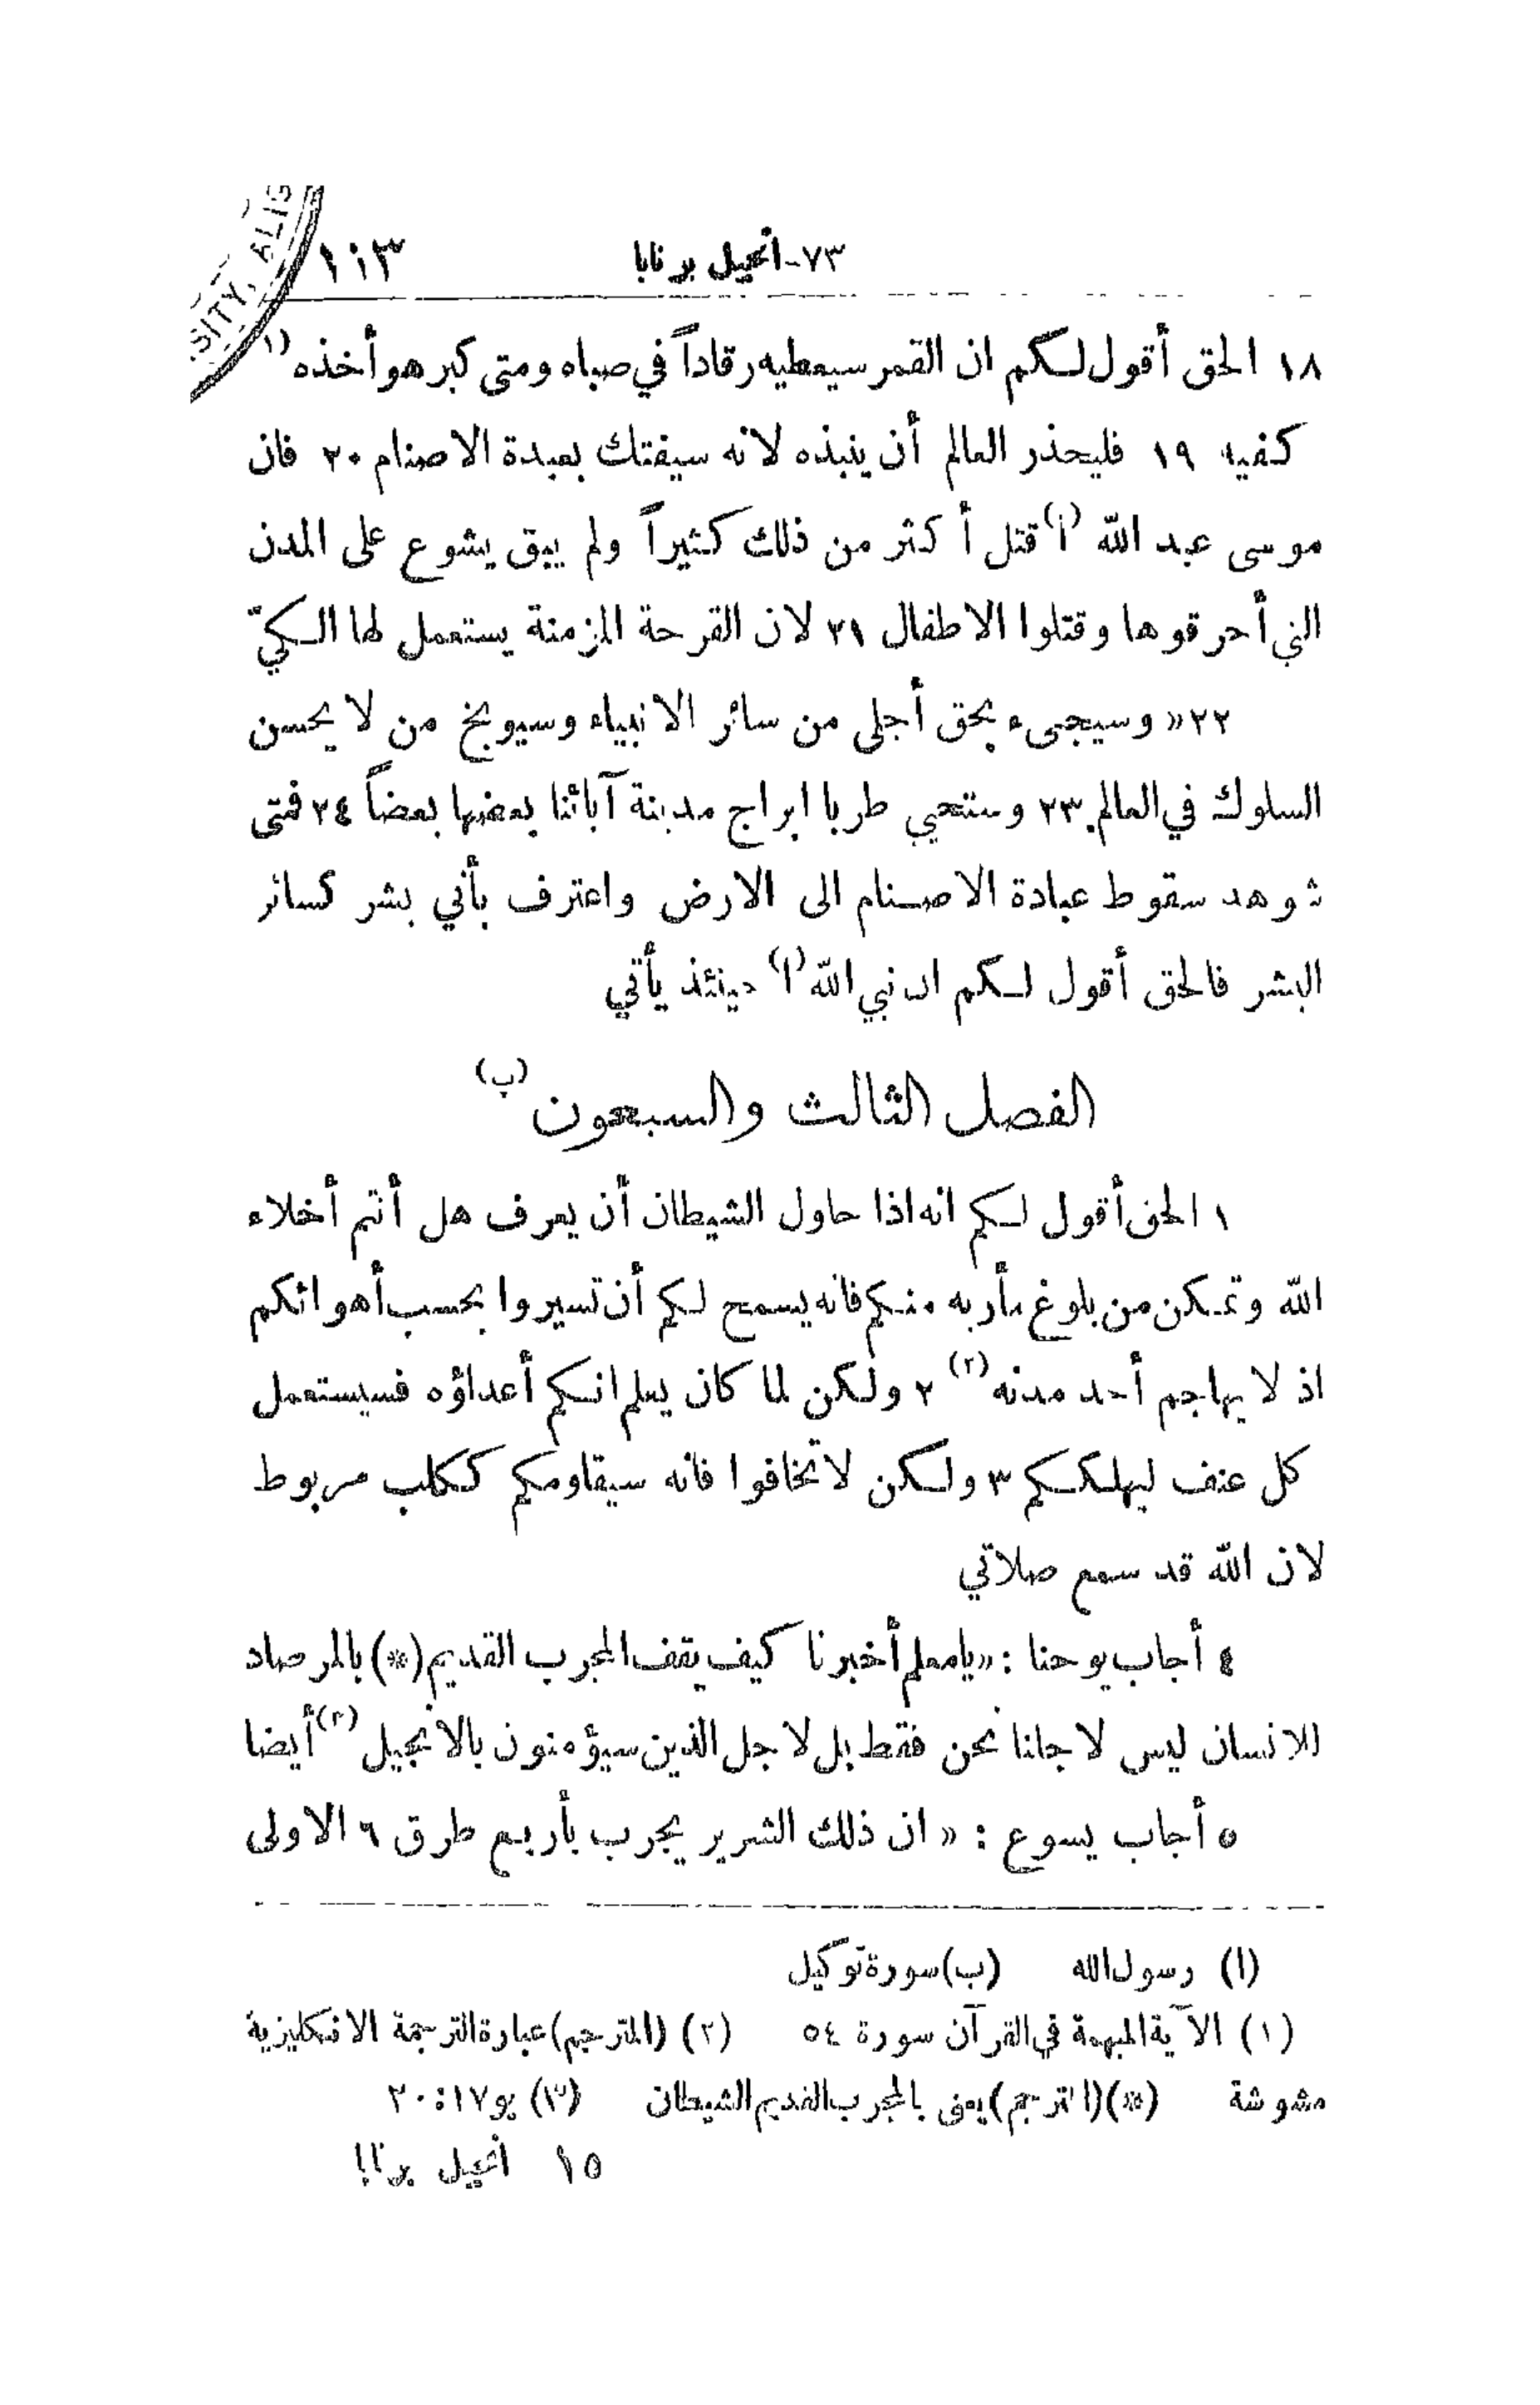 ٧٣-أنجيل برنابا ١١٣
SITY, ALIG
١٨ الحق أقول لكم ان القمر سيعطيه رقاداً في صباه ومتى كبر هو أخذه (١)
كفيه ١٩ فليحذر العالم أن ينبذه لانه سيفتك بعبدة الاصنام ٢٠ فان
موسى عبد الله (ا) قتل أكثر من ذلك كثيراً ولم يبق يشوع على المدن
التي أحرقوها وقتلوا الاطفال ٢١ لان القرحة المزمنة يستعمل لها الكيّ
٢٢ « وسيجىء بحق أجلى من سائر الانبياء وسيوبخ من لا يحسن
السلوك في العالم. ٢٣ وستتحيي طربا ابراج مدينة آبائنا بعضها بعضاً ٢٤ فمتى
شوهد سقوط عبادة الاصنام الى الارض واعترف بأني بشر كسائر
البشر فالحق أقول لكم ان نبي الله (ا) حينئذ يأتي
الفصل الثالث والسبعون (ب)
١ الحق أقول لكم انه اذا حاول الشيطان أن يعرف هل أنتم أخلاء
الله وتمكن من بلوغ مأربه منكم فانه يسمح لكم أن تسيروا بحسب أهوائكم
اذ لا يهاجم أحد مدنه (٢) ٢ ولكن لما كان يعلم انكم أعداؤه فسيستعمل
كل عنف ليهلككم ٣ ولكن لا تخافوا فانه سيقاومكم ككلب مربوط
لان الله قد سمع صلاتي
٤ أجاب يوحنا : « يا معلم أخبرنا كيف يقف المجرب القديم (*) بالمرصاد
للانسان ليس لاجلنا نحن فقط بل لاجل الذين سيؤمنون بالانجيل (٣) أيضا
٥ أجاب يسوع : « ان ذلك الشرير يجرب بأربع طرق ٦ الاولى
(ا) رسول الله (ب) سورة توكيل
(١) الآية المبهمة في القرآن سورة ٥٤ (٢) (المترجم) عبارة الترجمة الانكليزية
مشوشة (*) (المترجم) يعنى بالمجرب القديم الشيطان (٣) يو ١٧: ٢٠
١٥ أنجيل برنابا